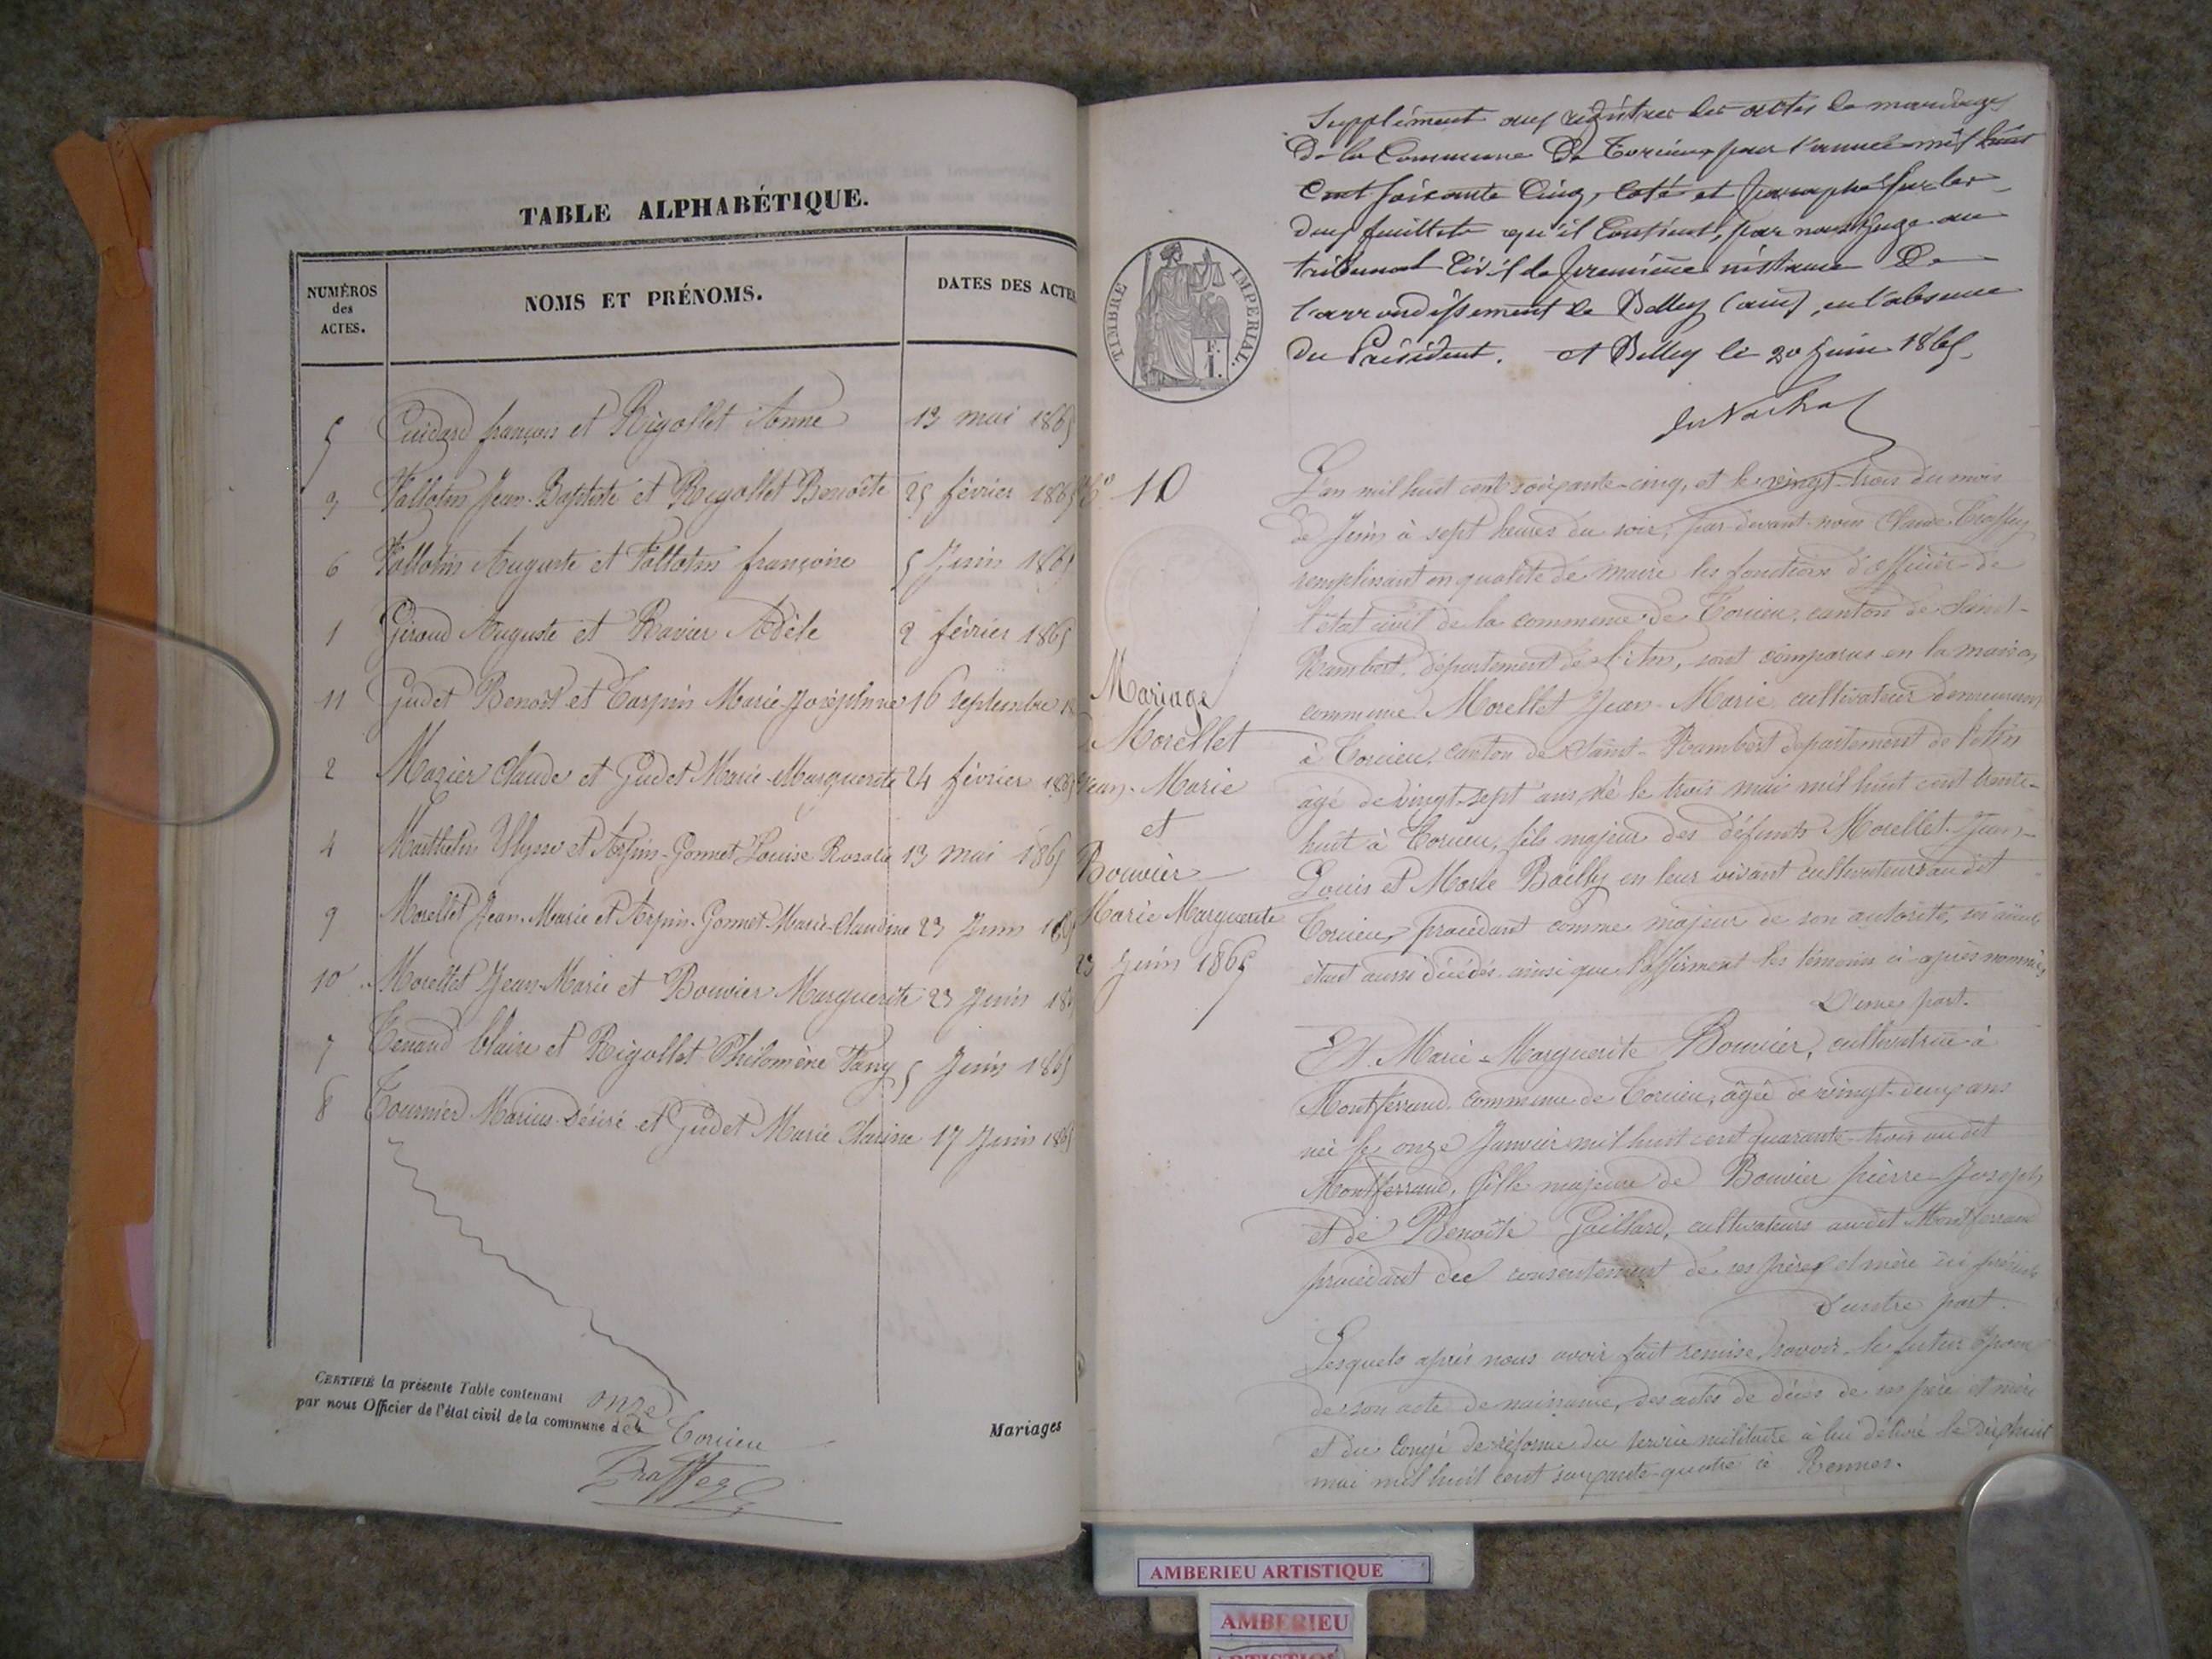 TABLE ALPHABÉTIQUE.
NUMÉROS des ACTES.
NOMS ET PRÉNOMS.
DATES DES ACTES
5 Cuidard françois et Rigollet Anne 13 mai 1865
3 Vallotin Jean-Baptiste et Rigollet Benoîte 25 février 1865
6 Vallotin Auguste et Vallotin françoise 5 Juin 1865
1 Giroud Auguste et Ravier Adèle 2 février 1865
11 Gudet Benoît et Tarpin Marie Joséphine 16 septembre 18
2 Mazier Claude et Gudet Marie-Marguerite 24 février 1865
4 Matthelin Ulysse et Arpin-Gonnet Louise Rosalie 13 mai 1865
9 Morellet Jean-Marie et Arpin-Gonnet Marie-Claudine 23 Juin 1865
10 Morellet Jean-Marie et Bouvier Marguerite 23 Juin 186
7 Tenand Claire et Rigollet Philomène Fany 5 Juin 1865
8 Tournier Marius-Désiré et Gudet Marie Clarine 17 Juin 1865
CERTIFIÉ la présente Table contenant onze
par nous Officier de l'état civil de la commune de Torcieu
Mariages
TIMBRE IMPÉRIAL
F. 1.
Supplément aux régistres des actes de mariages
De la Commune De Torcieu pour l'année mil huit
Cent soixante Cinq, Coté et paraphé sur les
deux feuillets qu'il Contient, par nous Juge au
tribunal Civil de première instance De
l'arrondissement de Belley (ain), en l'absence
du Président. A Belley le 20 Juin 1865.
N° 10
Mariage
de Morellet
Jean-Marie
et
Bouvier
Marie Marguerite
23 Juin 1865
L'an mil huit cent soixante-cinq, et le vingt-trois du mois
de Juin à sept heures du soir, par-devant-nous Claude
remplissant en qualité de maire les fonctions d'officier de
l'état civil de la commune de Torcieu, canton de Saint-
Rambert, département de l'Ain, sont comparus en la maison
commune Morellet Jean-Marie cultivateur demeurant
à Torcieu, canton de Saint-Rambert département de l'Ain
âgé de vingt-sept ans, né le trois mai mil huit cent trente-
huit à Torcieu, fils majeur des défunts Morellet Jean-
Louis et Marie Bailly en leur vivant cultivateurs audit
Torcieu, procédant comme majeur de son autorité, ses aïeuls
étant aussi décédés ainsi que l'affirment les témoins ci-après nommés
D'une part.
Et Marie-Marguerite Bouvier, cultivatrice à
Montferrand, commune de Torcieu, âgée de vingt-deux ans
née le onze Janvier mil huit cent quarante-trois audit
Montferrand, fille majeure de Bouvier pierre-Joseph
et de Benoîte Gaillard, cultivateurs audit Montferrand
procédant du consentement de ses père et mère ici présents
D'autre part.
Lesquels après nous avoir fait remise, savoir le futur époux
de son acte de naissance, des actes de décès de ses père et mère
et du congé de réforme du service militaire à lui délivré le dix-huit
mai mil huit cent soixante-quatre à Rennes.
AMBERIEU ARTISTIQUE
AMBERIEU
ARTISTIQUE